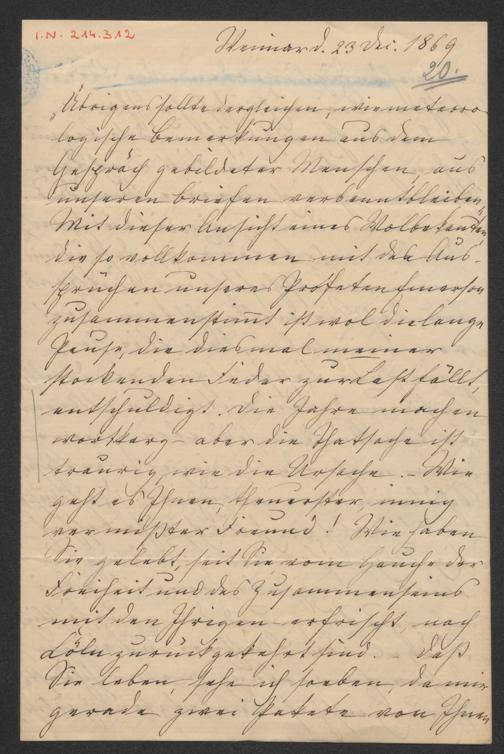 I.N. 214.312
Weimar d. 23 Dec. 1869
20.
„Übrigens sollte dergleichen, wie meteoro-
logische Bemerkungen aus dem
Gespräch gebildeter Menschen, aus
unseren Briefen verbannt bleiben.“
Mit dieser Ansicht eines Wolbekannten
die so vollkommen mit den Aus-
sprüchen unseres Profeten Emerson
zusammenstimmt ist wol die lange
Pause, die diesmal meiner
stockenden Feder zur Last fällt,
entschuldigt. Die Jahre machen
wortkarg – aber die Thatsache ist
traurig, wie die Ursache. – Wie
geht es Ihnen, theuerster, innig
vermißter Freund! Wie haben
Sie gelebt, seit Sie vom Hauche der
Freiheit und des Zusammenseins
mit den Ihrigen erfrischt, nach
Cöln zurückgekehrt sind. – Daß
Sie leben, sehe ich soeben, da mir
gerade zwei Pakete von Ihnen